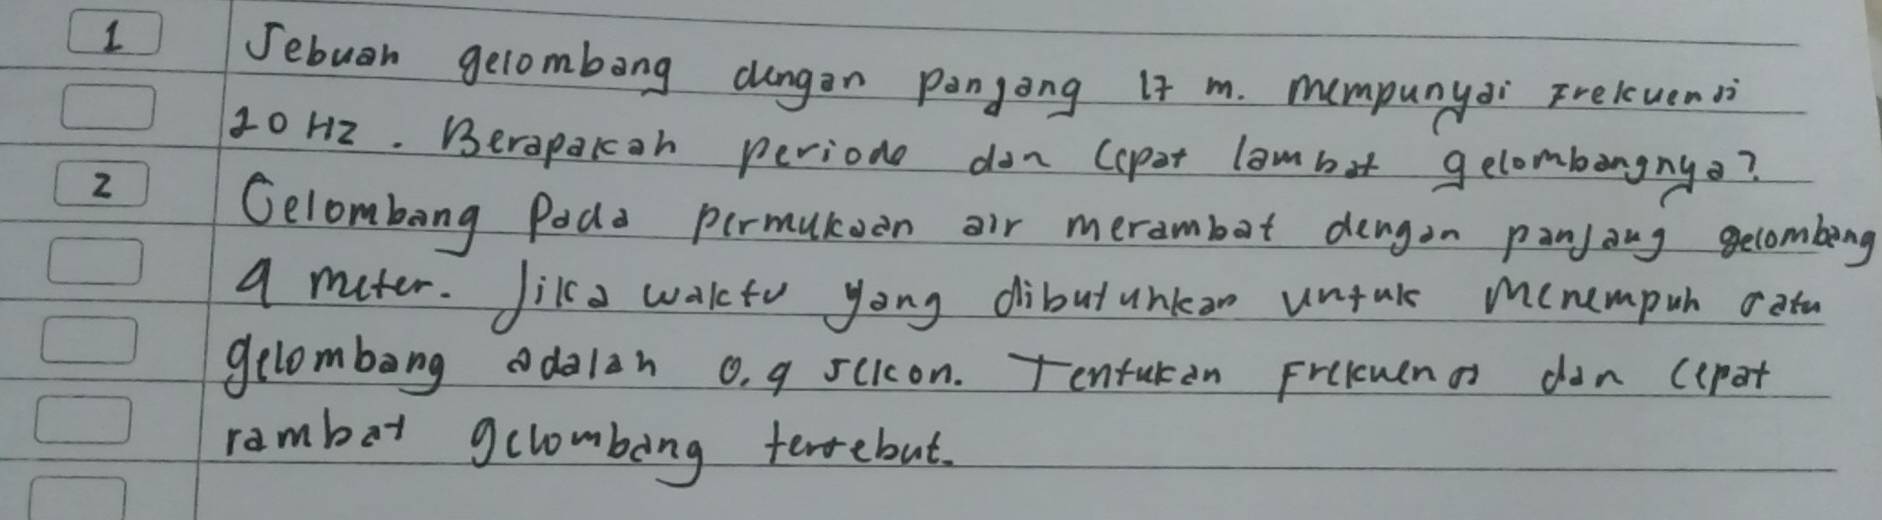 1 Sebuah gelombang dengan pangang 17 m. mempunyai Frekuensi
20 HZ. Berapakah periode dan Cepat lambat gelombangnya?
2 Gelombang Pada permukaan air merambat dengan panjang gelombang
9 meter. Jika waktu yang dibutuhkan untuk Menempuh satu
gelombang adalah 0.9 sekon. Tentukan Frekuensi dan Cepat
rambat gelombang tersebut.